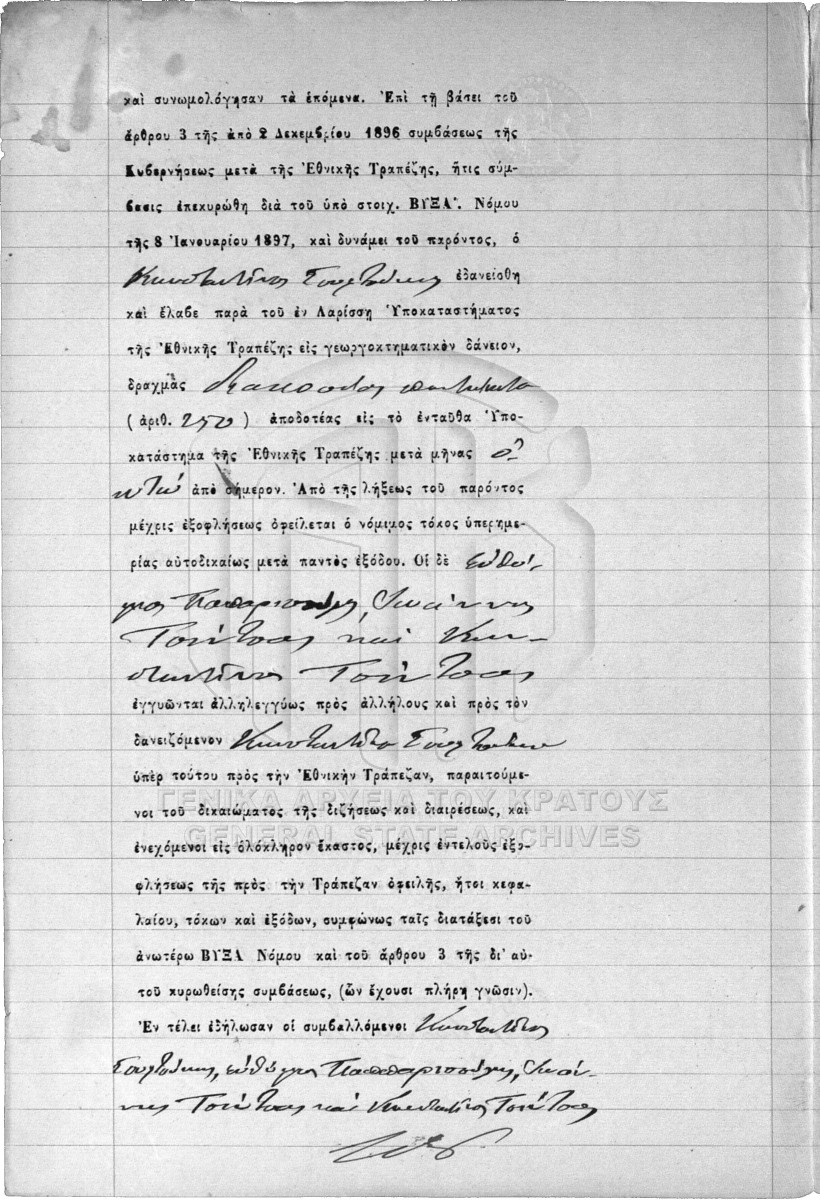 καὶ συνωμολόγησαν τὰ ἑπόμενα. Ἐπὶ τῇ βάσει τοῦ
ἄρθρου 3 τῆς ἀπὸ 2 Δεκεμβρίου 1896 συμβάσεως τῆς
Κυβερνήσεως μετὰ τῆς Ἐθνικῆς Τραπέζης, ἥτις σύμ-
βασις ἐπεκυρώθη διὰ τοῦ ὑπὸ στοιχ. ΒΥΞΑ΄. Νόμου
τῆς 8 Ἰανουαρίου 1897, καὶ δυνάμει τοῦ παρόντος, ὁ
Κωνσταντῖνος ἐδανείσθη
καὶ ἔλαβε παρὰ τοῦ ἐν Λαρίσσῃ Ὑποκαταστήματος
τῆς Ἐθνικῆς Τραπέζης εἰς γεωργοκτηματικὸν δάνειον,
δραχμὰς διακοσίας πεντήκοντα
(ἀριθ. 250) ἀποδοτέας εἰς τὸ ἐνταῦθα Ὑπο-
κατάστημα τῆς Ἐθνικῆς Τραπέζης μετὰ μῆνας ὀ-
κτὼ ἀπὸ σήμερον. Ἀπὸ τῆς λήξεως τοῦ παρόντος
μέχρις ἐξοφλήσεως ὀφείλεται ὁ νόμιμος τόκος ὑπερημε-
ρίας αὐτοδικαίως μετὰ παντὸς ἐξόδου. Οἱ δὲ Εὐθύ-
μιος Ἰωάννης
Τσήτσας καὶ Κων-
σταντῖνος Τσήτσας
ἐγγυῶνται ἀλληλεγγύως πρὸς ἀλλήλους καὶ πρὸς τὸν
δανειζόμενον Κωνσταντῖνον
ὑπὲρ τούτου πρὸς τὴν Ἐθνικὴν Τράπεζαν, παραιτούμε-
νοι τοῦ δικαιώματος τῆς διζήσεως καὶ διαιρέσεως, καὶ
ΓΕΝΙΚΑ ΑΡΧΕΙΑ ΤΟΥ ΚΡΑΤΟΥΣ
GENERAL STATE ARCHIVES
ἐνεχόμενοι εἰς ὁλόκληρον ἕκαστος, μέχρις ἐντελοῦς ἐξο-
φλήσεως τῆς πρὸς τὴν Τράπεζαν ὀφειλῆς, ἤτοι κεφα-
λαίου, τόκων καὶ ἐξόδων, συμφώνως ταῖς διατάξεσι τοῦ
ἀνωτέρω ΒΥΞΑ Νόμου καὶ τοῦ ἄρθρου 3 τῆς δι' αὐ-
τοῦ κυρωθείσης συμβάσεως, (ὧν ἔχουσι πλήρη γνῶσιν).
Ἐν τέλει ἐδήλωσαν οἱ συμβαλλόμενοι Κωνσταντῖνος
Εὐθύμιος Ἰωάν-
νης Τσήτσας καὶ Κωνσταντῖνος Τσήτσας